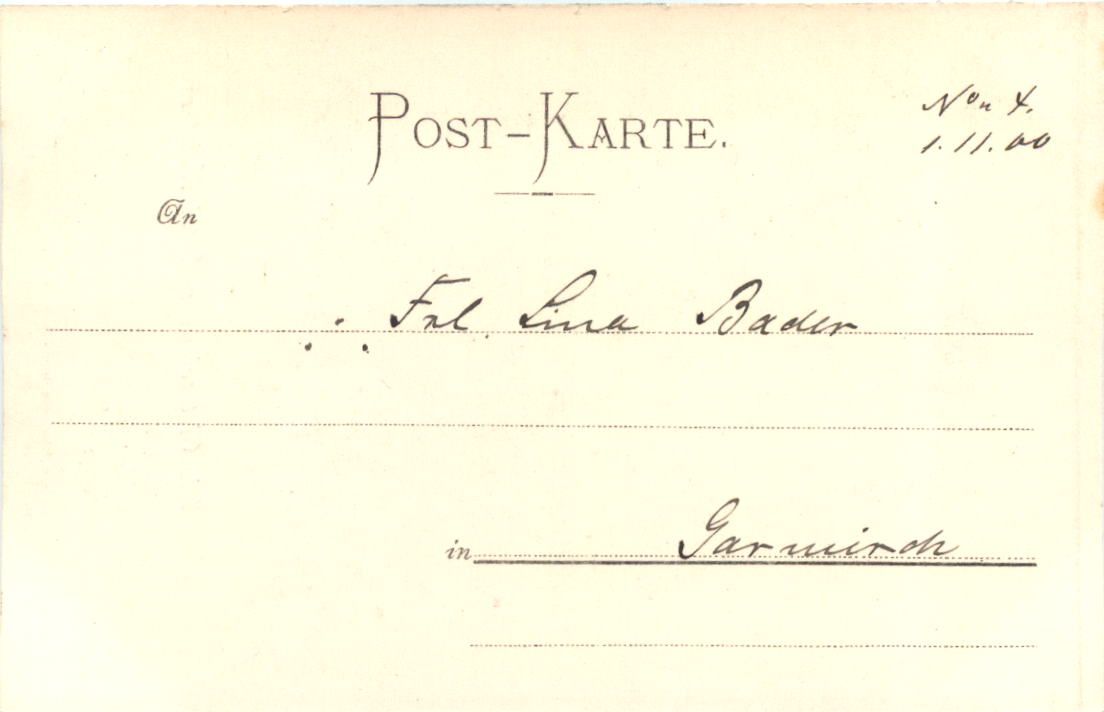 POST-KARTE.
No 4.
1.11.00
An
Frl Lina Bader
in Garmisch